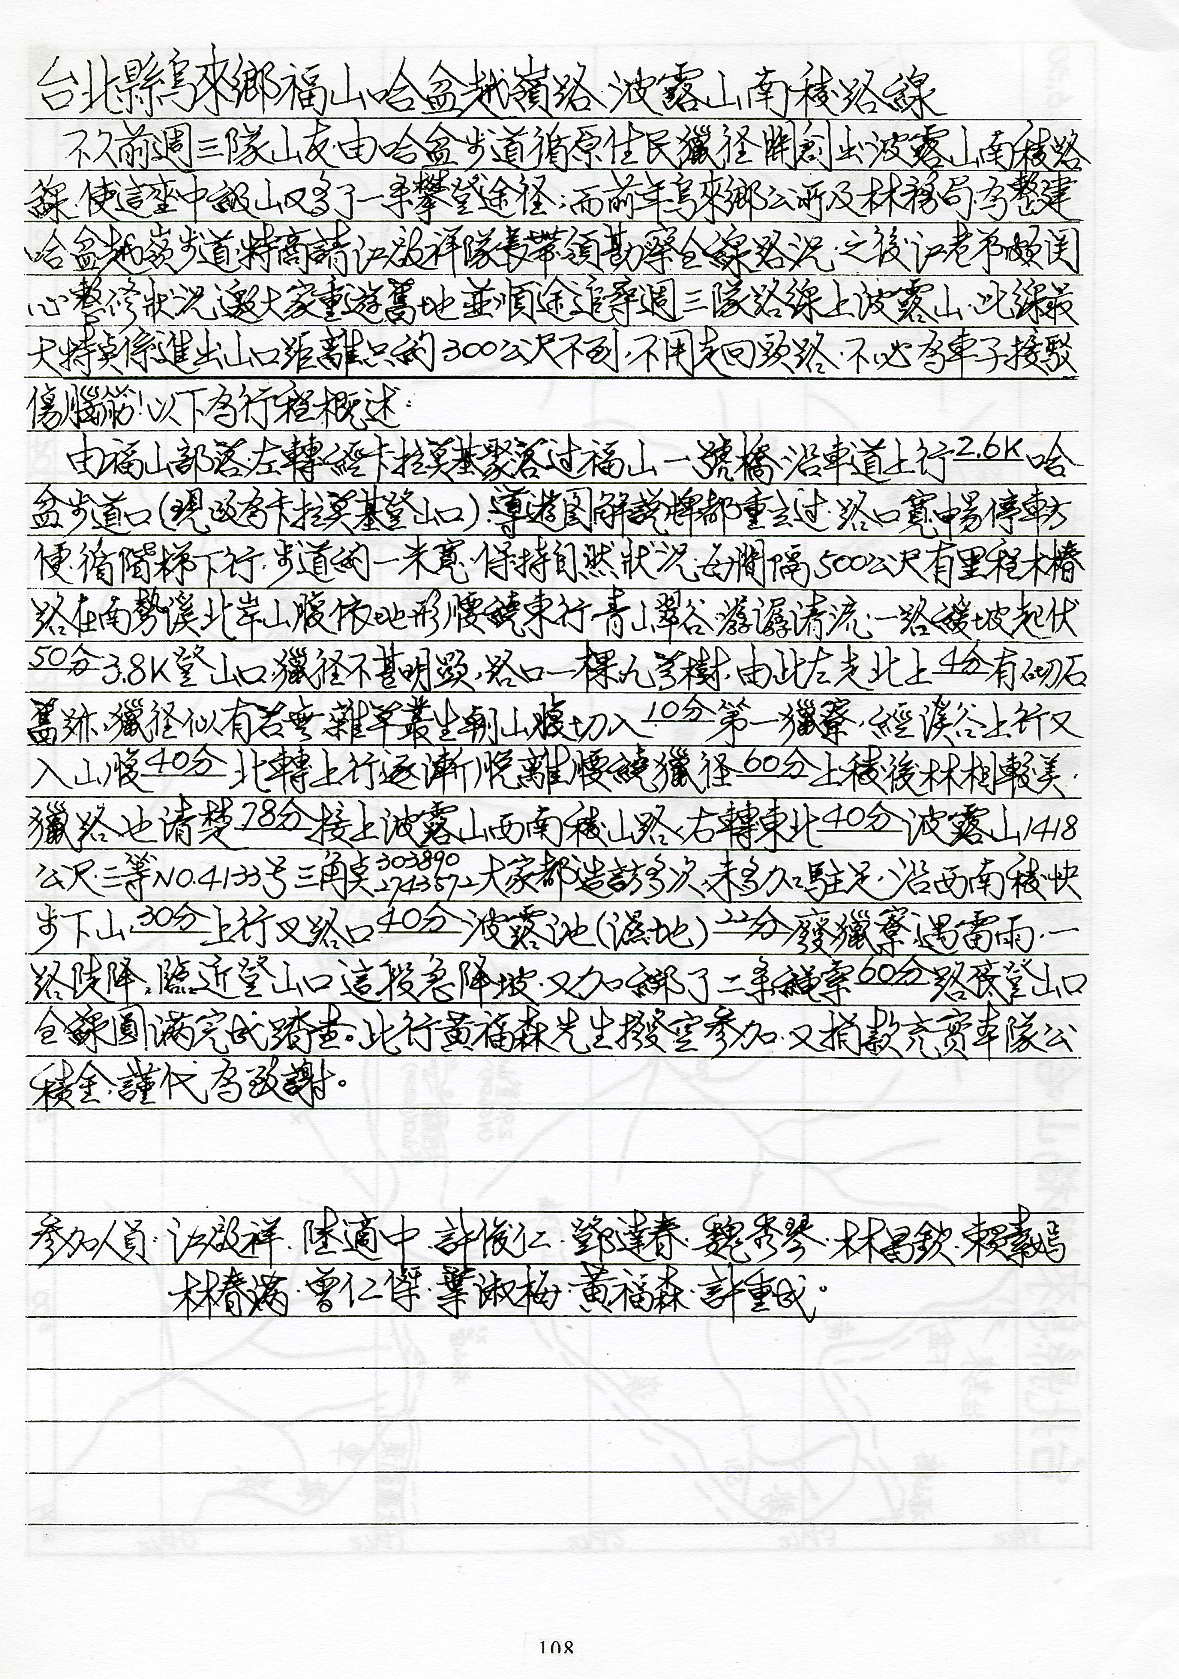 台北縣烏來鄉福山哈盆越嶺路、波露山南稜路線
不久前週三隊山友由哈盆步道循原住民獵徑開創出波露山南稜路
線、使這座中級山又多了一条攀登途徑；而前年烏來鄉公所及林務局為整建
哈盆越嶺步道、特商請江啟祥隊長帶領勘察全線路況、之後江老弟頗関
心整修狀況、邀大家重遊舊地並順途追尋週三隊路線上波露山、此線最
大特点係進出山口距離只約300公尺不到、不用走回頭路、不必為車子接駁
傷腦筋！以下為行程概述：
由福山部落左轉經卡拉莫基聚落过福山一號橋、沿車道上行2.6K哈
盆步道口(現改為卡拉莫基登山口)、導遊図解說牌都重立过、路口寬暢停車方
便、循階梯下行、步道約一米寬、保持自然狀況、每間隔500公尺有里程木樁
路在南勢溪北岸山腹依地形腰繞東行、青山翠谷、潺潺清流、一路緩坡起伏
50分3.8K登山口、獵徑不甚明顯、路口一棵九芎樹、由此左走北上4分有砌石
舊跡、獵徑似有若無、雜草叢生朝山腹切入10分第一獵寮、經溪谷上行又
入山腹40分北轉上行逐漸脫離腰繞獵徑60分上稜後林相較美、
獵路也清楚78分接上波露山西南稜山路、右轉東北40分波露山1418
公尺、三等NO.4133号三角点303890 2743572大家都造訪多次、未多加駐足、沿西南稜快
步下山30分上行叉路口40分波露池(濕地)22分廢獵寮遇雷雨、一
路陡降、臨近登山口這段急降坡、又加綁了二条繩索60分路旁登山口
全線圓滿完成踏查。此行黃福森先生撥空參加、又捐款充實車隊公
積金、謹代為致謝。
參加人員：江啟祥、陸適中、許俊仁、鄧達春、魏秀琴、林昌欽、賴素嫣
林春滿、曾仁傑、葉淑梅、黃福森、許重成。
108